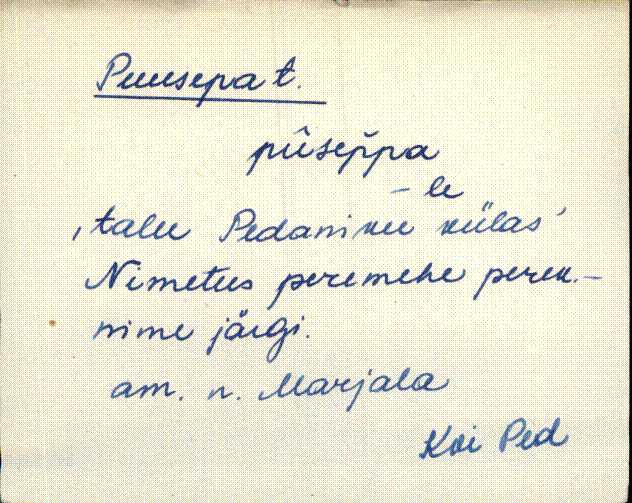 Puusepa t.
pûsep̆pa
– le
‚talu Pedaniku külas’
Nimetus peremehe perek.–
nime järgi.
am. n. Marjala
Koi Ped